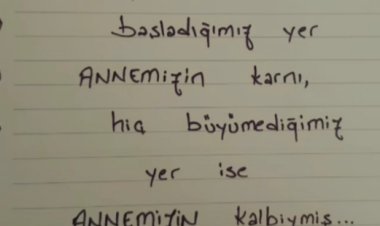 başladığımız yer
ANNEMİZİN karnı,
hiç büyümediğimiz
yer ise
ANNEMİZİN kalbiymiş...